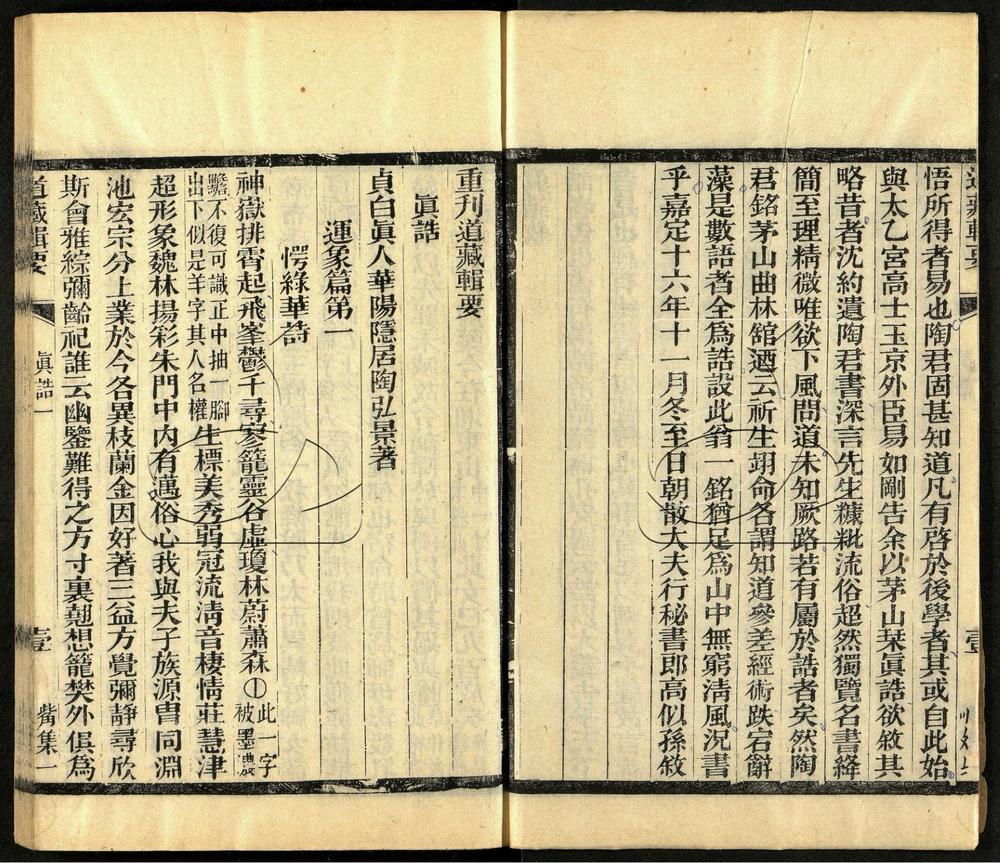 悟所得者易也陶君固甚知道凡有啓於後學者其或自此始
與太乙宮高士玉京外臣易如剛告余以茅山栞眞誥欲敘其
略昔者沈約遺陶君書深言先生糠粃流俗超然獨覽名書絳
簡至理精微唯欲下風問道未知厥路若有屬於誥者矣然陶
君銘茅山曲林舘迺云祈生翊命各謂知道參差經術跌宕辭
藻是數語者全爲誥設此翁一銘猶足爲山中無窮淸風況書
乎嘉定十六年十一月冬至日朝散大夫行秘書郎高似孫敘
重刊道藏輯要
眞誥
貞白眞人華陽隱居陶弘景著
運象篇第一
愕綠華詩
神嶽排霄起飛峯鬱千尋寥籠靈谷虛瓊林蔚蕭森①此一字
被墨濃
黵不復可識正中抽一脚
出下似是羊字其人名權生標美秀弱冠流淸音棲情莊慧津
超形象魏林揚彩朱門中內有邁俗心我與夫子族源冑同淵
池宏宗分上業於今各異枝蘭金因好著三益方覺彌靜尋欣
斯會雅綜彌齡祀誰云幽鑒難得之方寸裏翹想籠樊外俱爲
道藏輯要 眞誥一 壹 觜集一